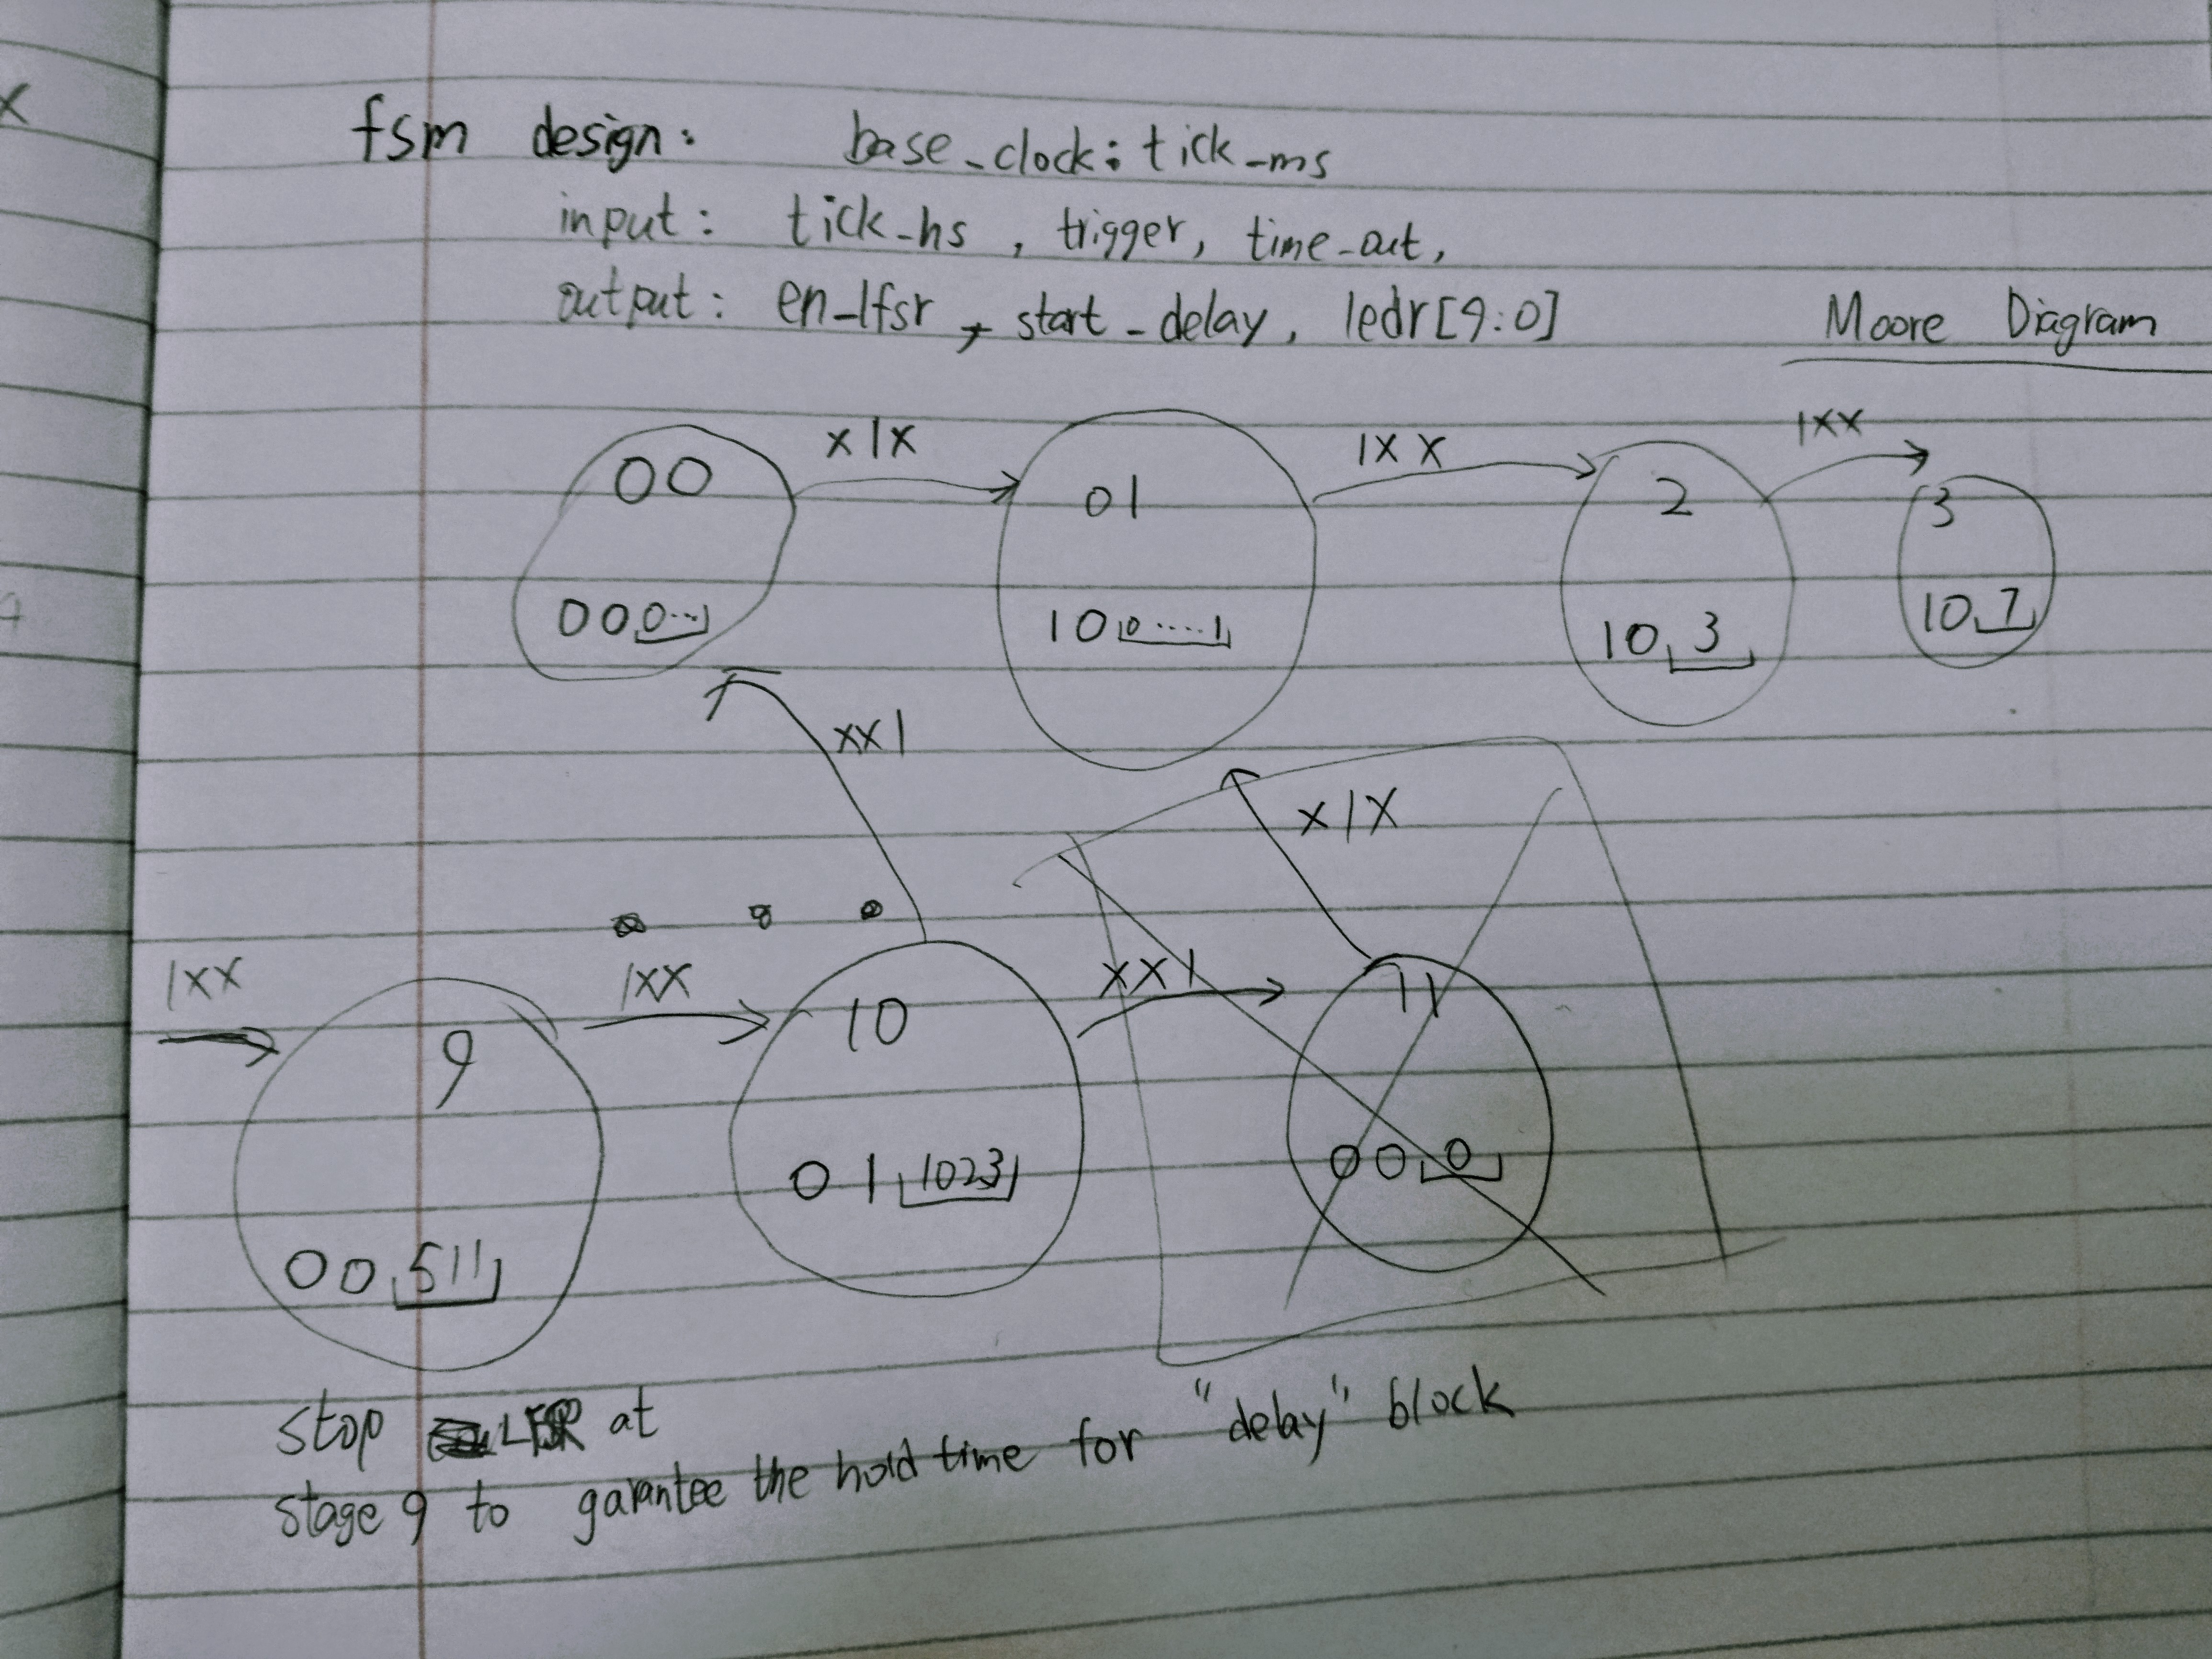 X
fsm design: base_clock: tick_ms
input: tick_hs, trigger, time_out,
output: en_lfsr, start_delay, ledr[9:0]
Moore Diagram
00 X1X 01 1XX 2 1XX 3
000... 100....1 10 3 10 7
XX1 X1X
1XX 9 1XX 10 XX1 11
00 511 01 1023 00 0
stop LFSR at
stage 9 to garantee the hold time for "delay" block